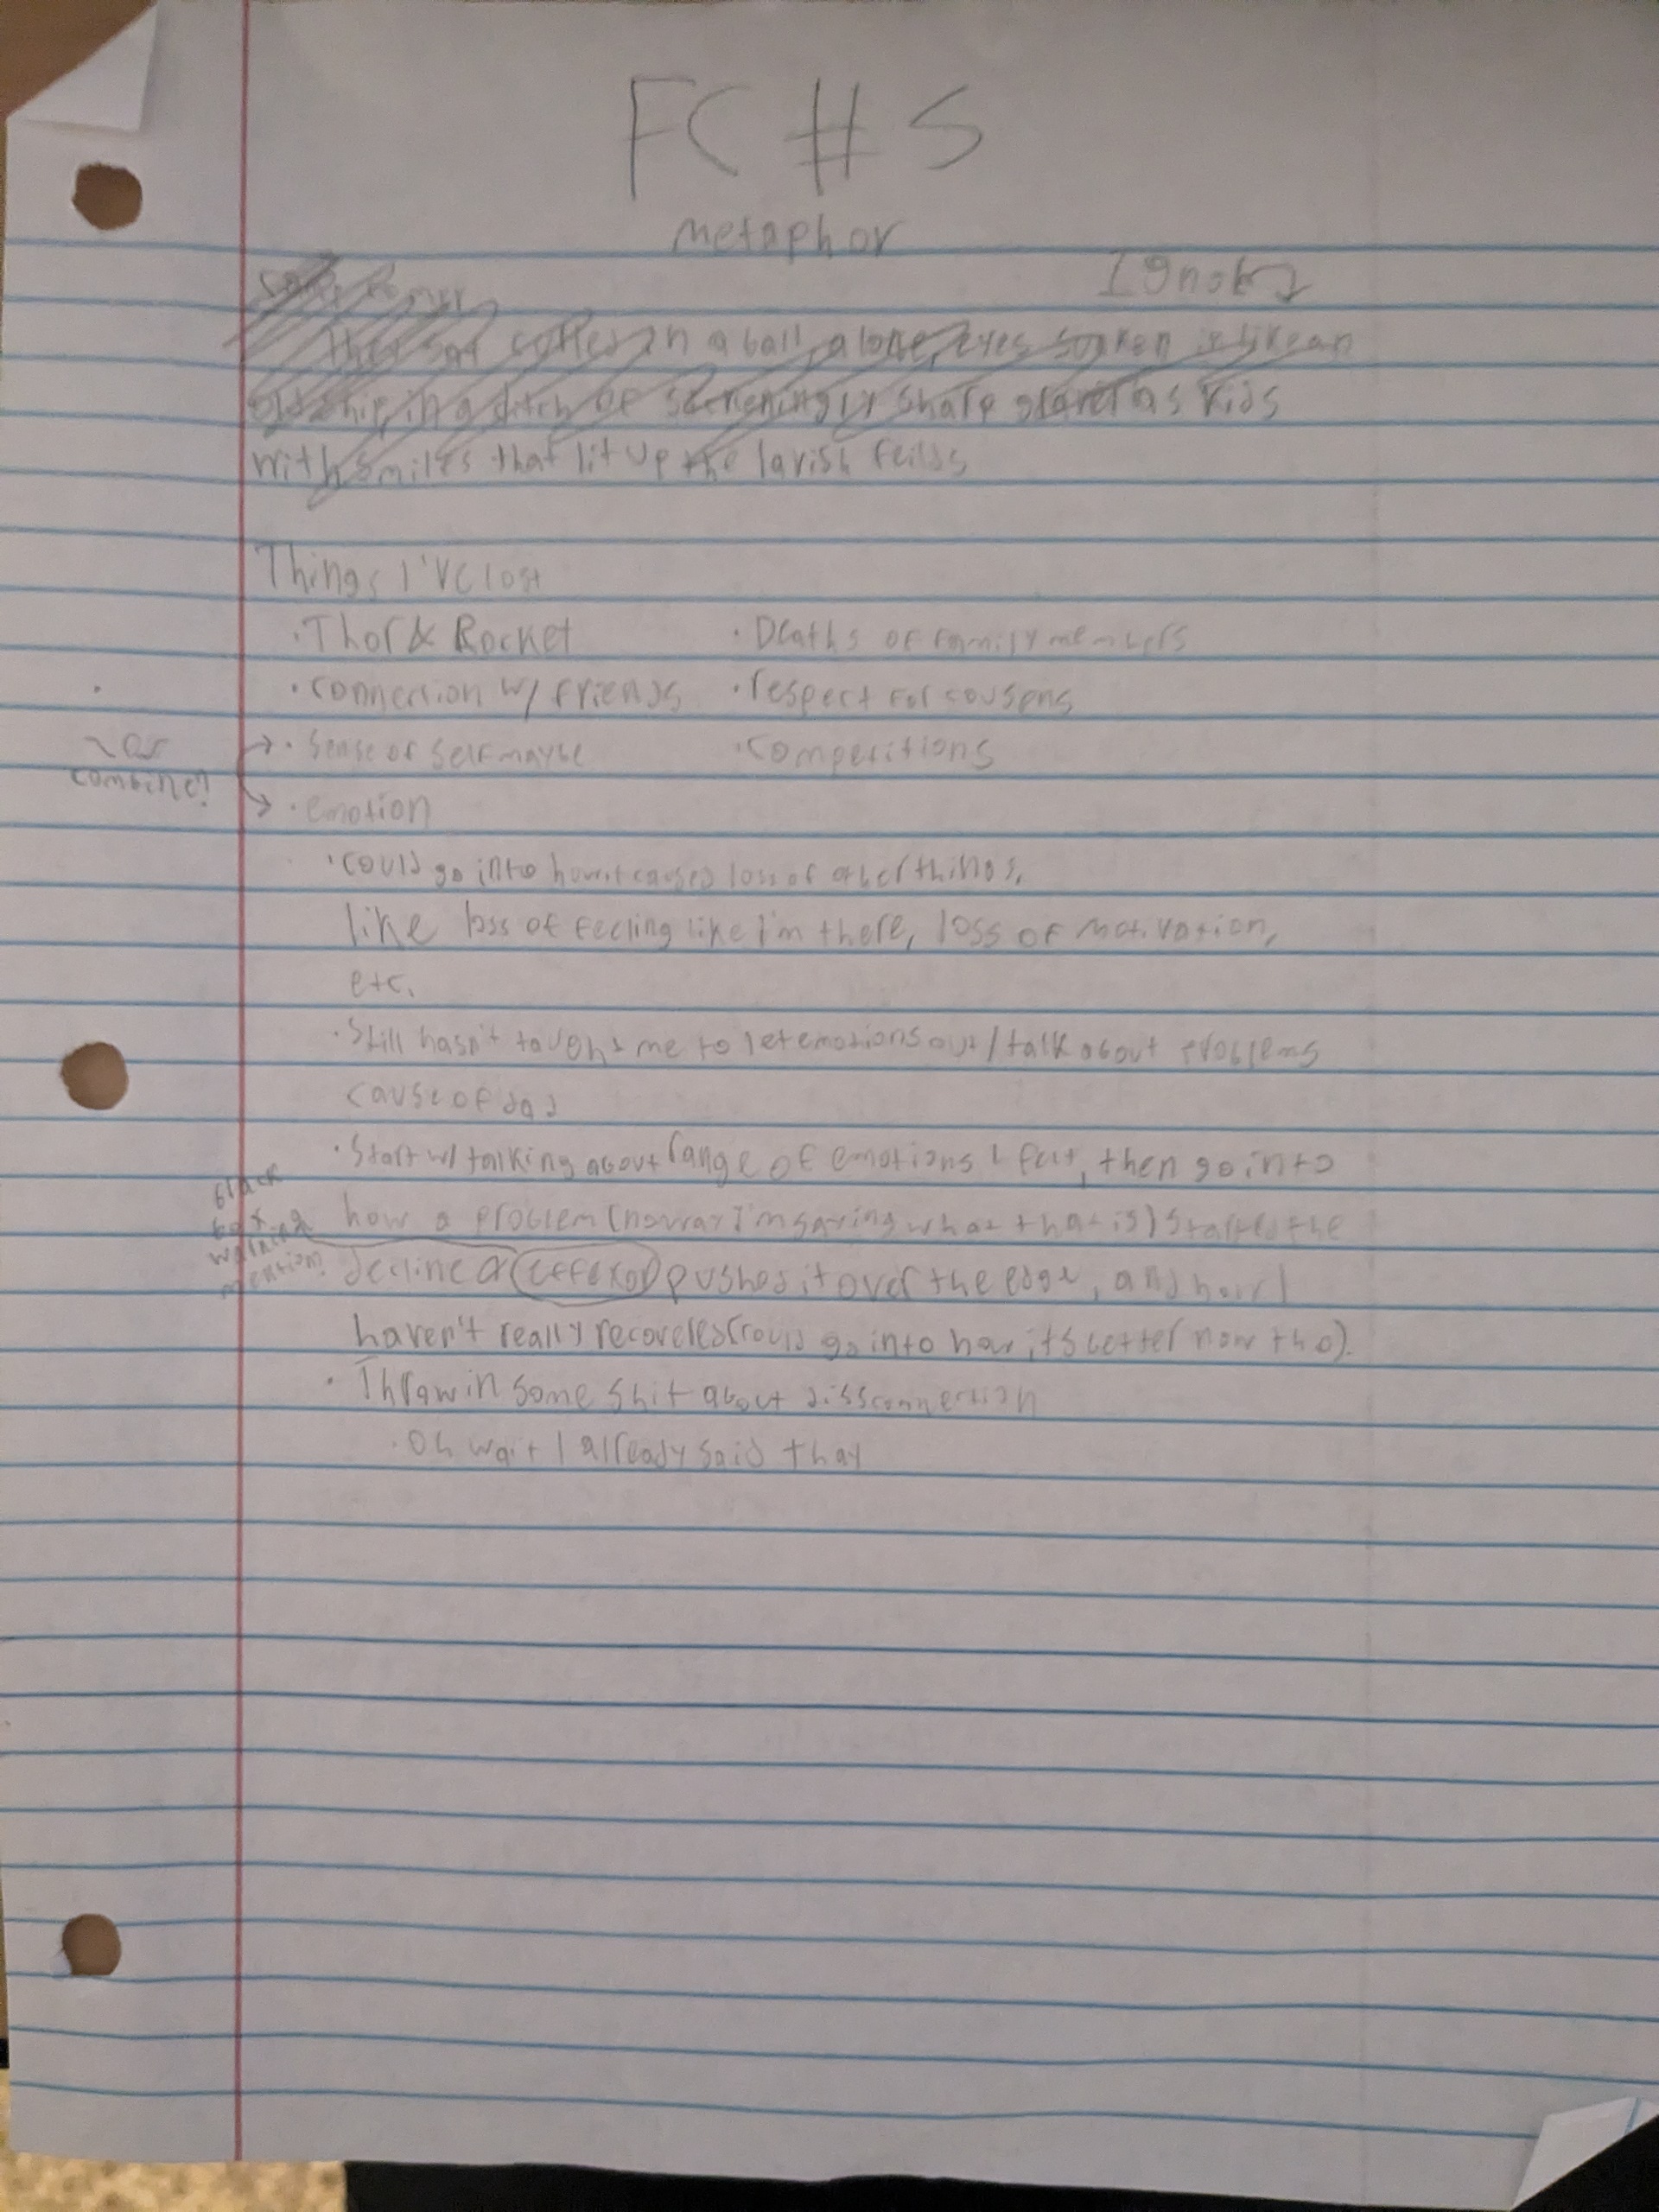 FC #5
metaphor
They sat in a ball, alone, eyes like an
old ship, in a ditch of sharp as kids
with smiles that lit up the lavish feilds
Things I've lost
· Thor & Rocket
· Deaths of family members
· connection w/ friends
· respect for
· sense of self maybe
· competitions
or
combine?
· emotion
· could go into how it caused loss of other things,
like loss of feeling like I'm there, loss of motivation,
etc.
· Still hasn't taught me to let emotions out / talk about problems
cause of dad
· Start w/ talking about range of emotions I felt, then go into
how a problem (no way I'm saying what that is) started the
decline & effexor pushed it over the edge, and how I
haven't really recovered (could go into how it's better now tho).
black
box
warning
mention?
· Throw in some shit about dissconnection
· Oh wait I already said that